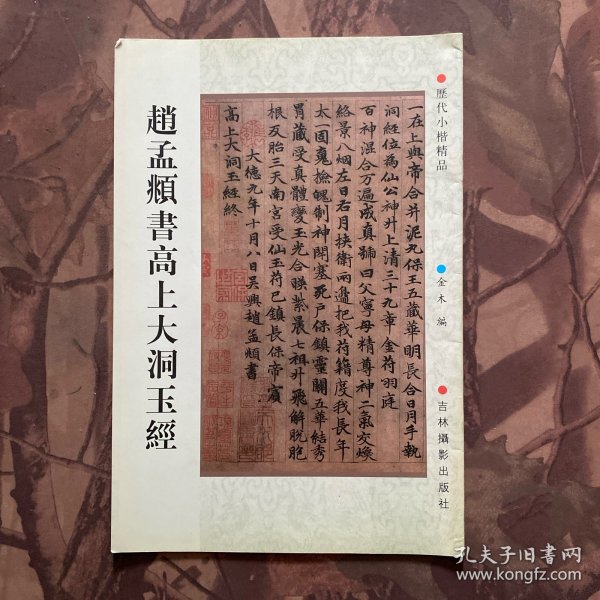 趙孟頫書高上大洞玉經
歷代小楷精品
金木 編
吉林攝影出版社
一在上與帝合并泥丸保王五藏華明長合日月手執
洞經位為仙公神升上清三十九章金苻羽庭
百神混合万遍成真號曰父寧母精尊神二氣交煥
絡景八烟左日右月挾衛兩邊把我苻籍度我長年
太一固魂檢魄制神開塞死戶保鎮靈關五華結秀
胃藏受真體變玉光合暎紫晨七祖升飛解脫胞
根反胎三天南宮受仙玉苻已鎮長保帝賓
大德九年十月八日吳興趙孟頫書
高上大洞玉經終
孔夫子旧书网
www.kongfz.com